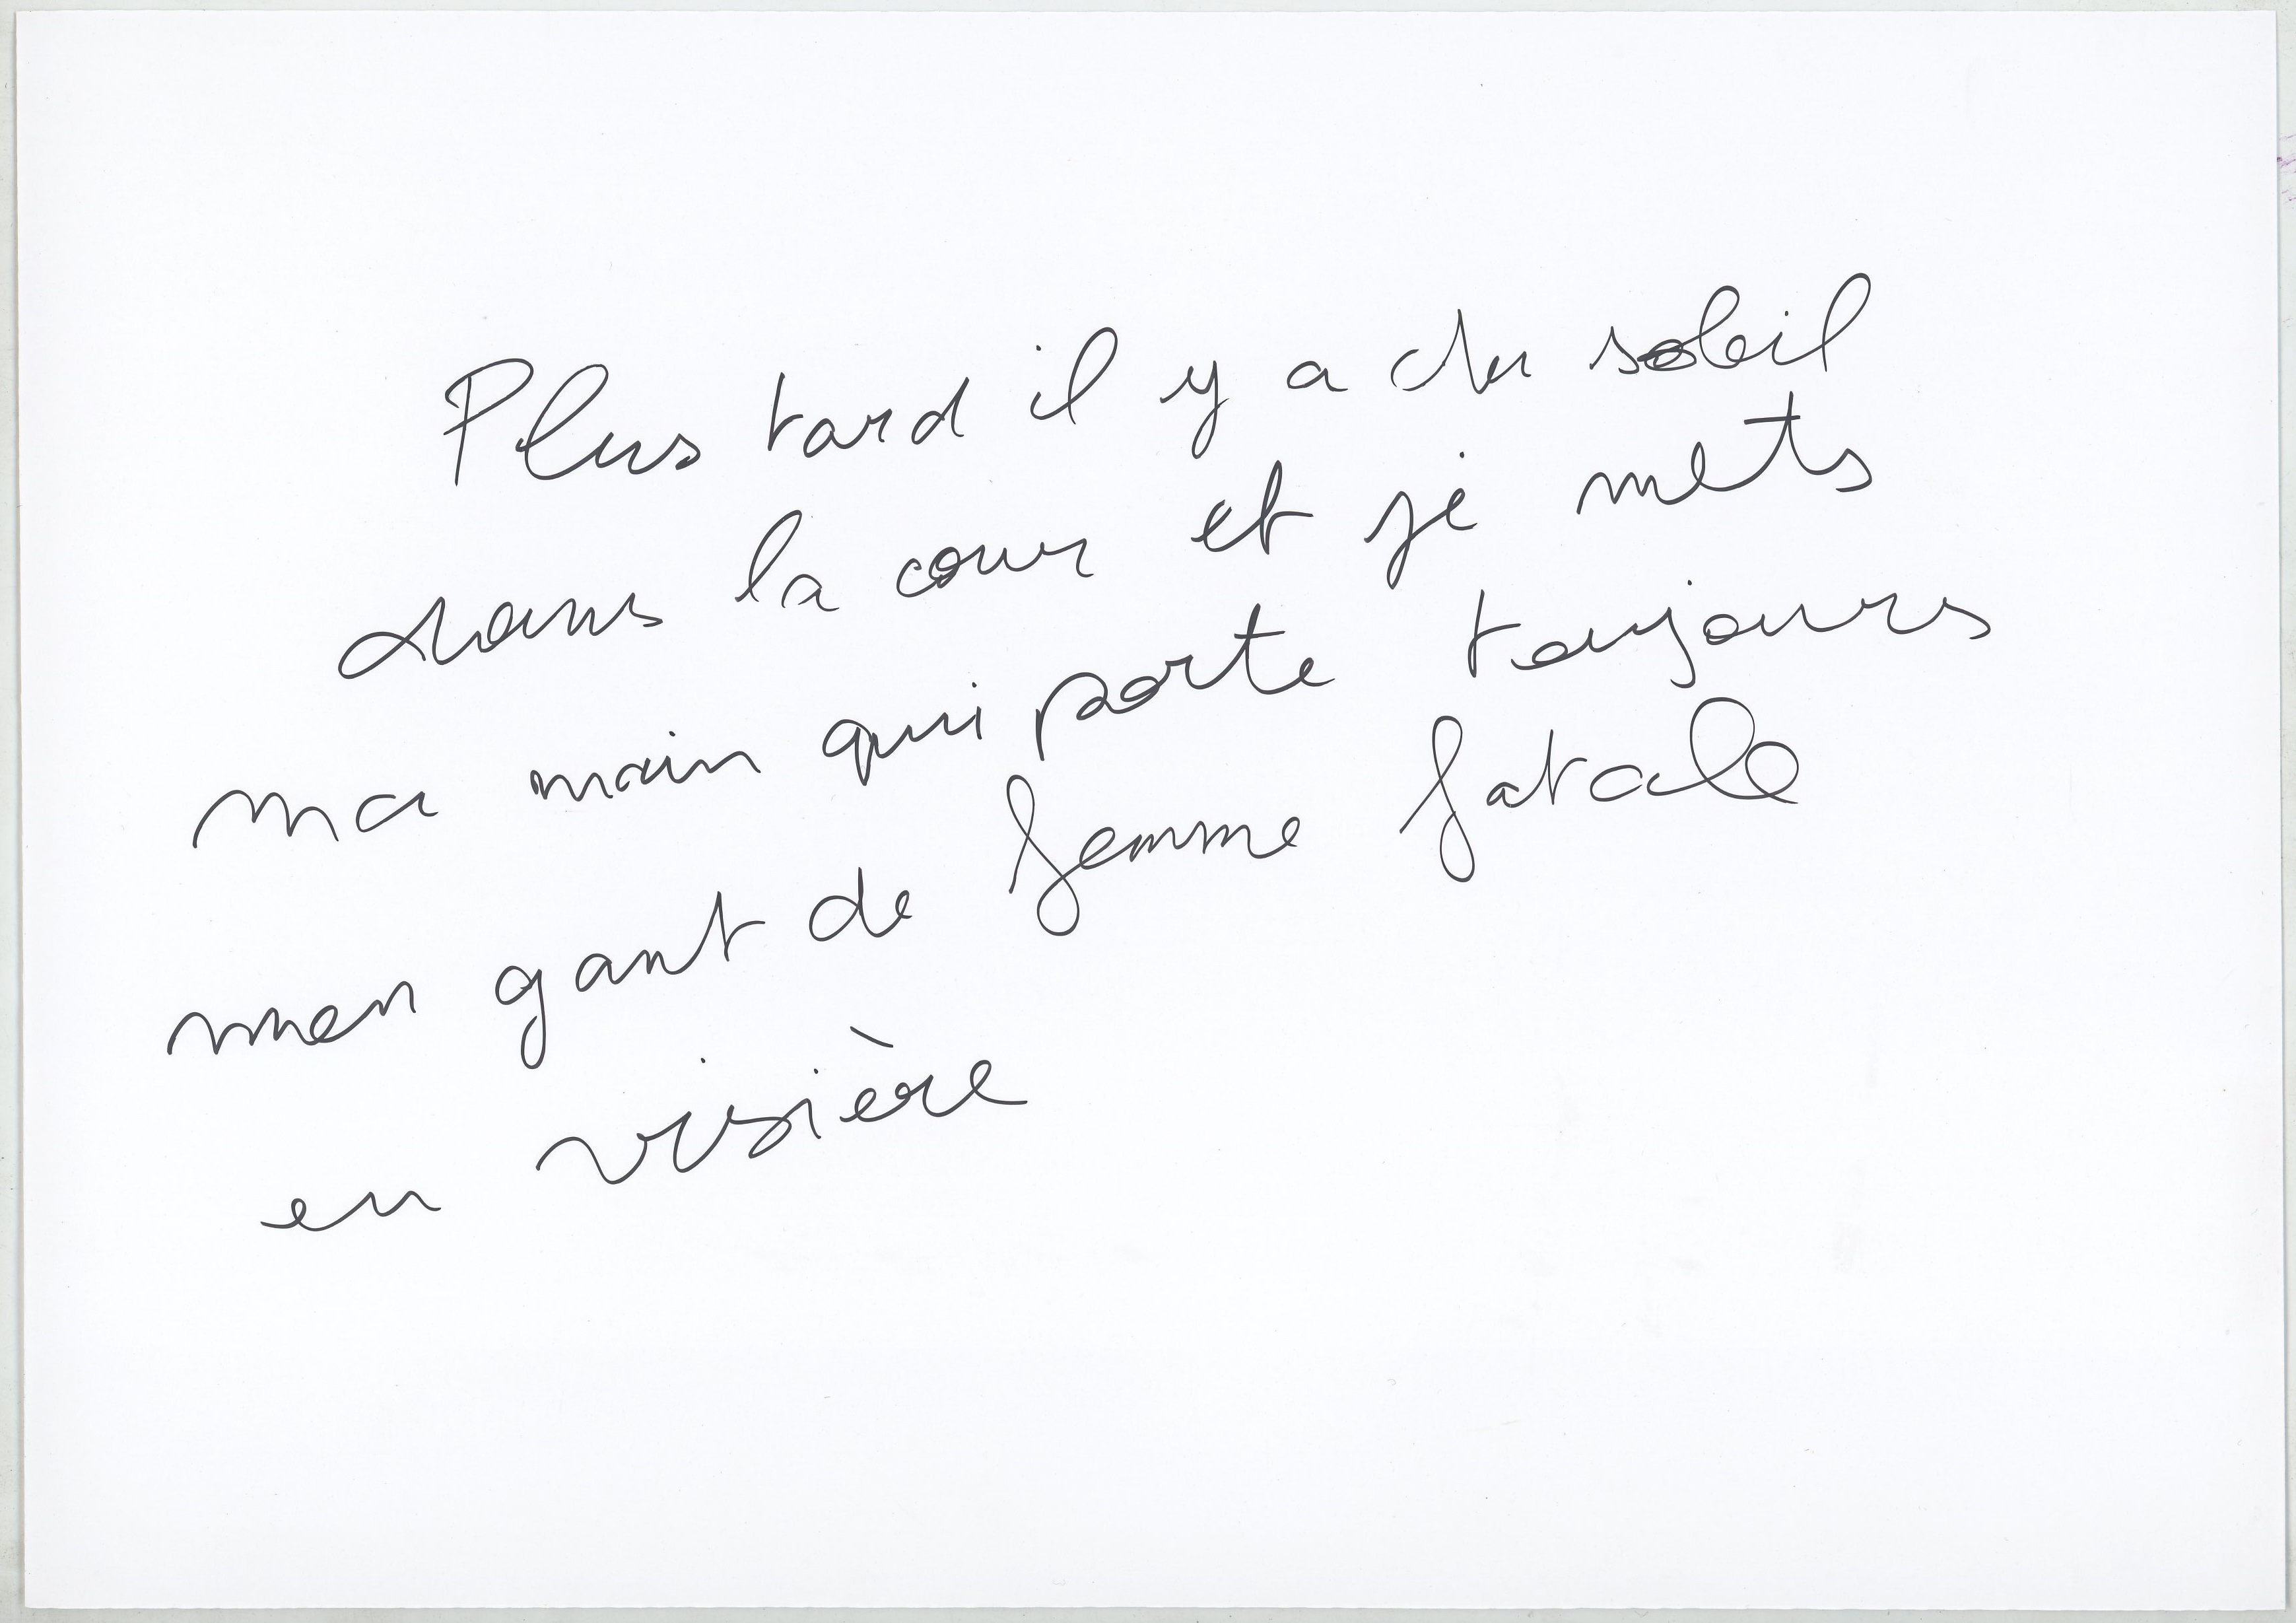 Plus tard il y a du soleil
dans la cour et je mets
ma main qui porte toujours
mon gant de femme fatale
en visière